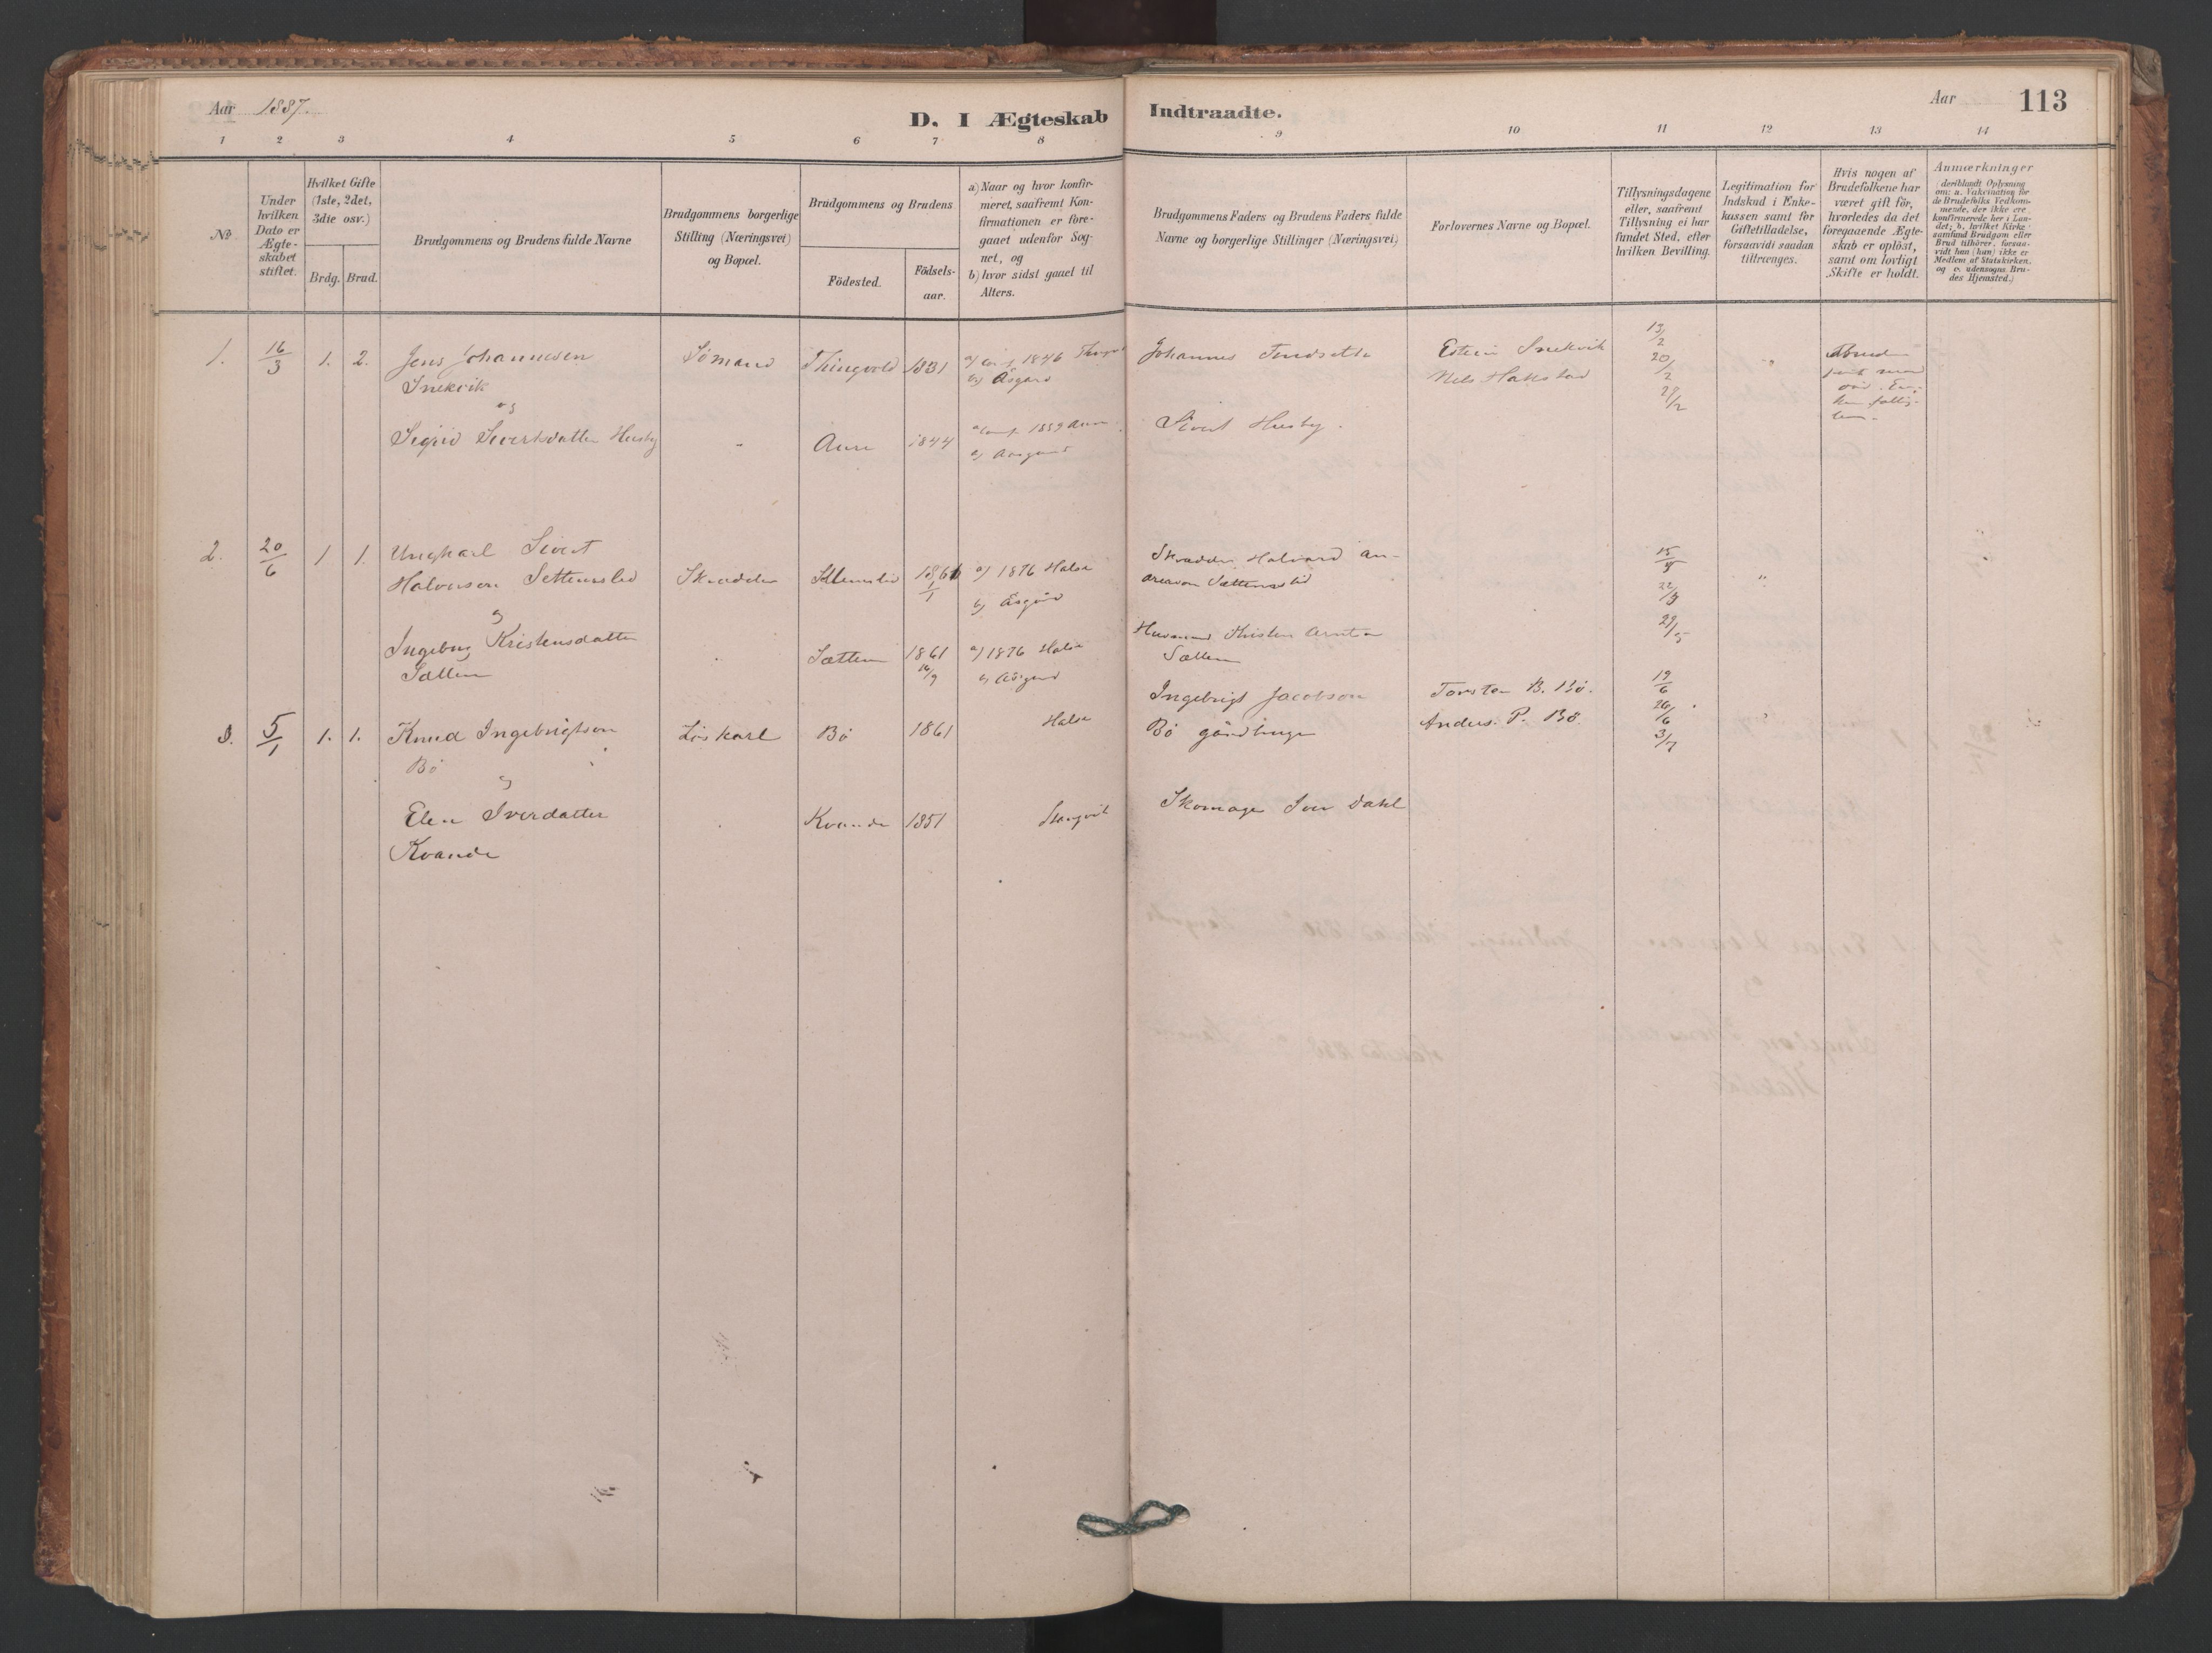 Aar 1887.
D. I Ægteskab Indtraadte.
Aar 113
1 2 3 4 5 6 7 8 9 10 11 12 13 14
No.
Under hvilken Dato er Ægteskabet stiftet.
Hvilket Gifte (1ste, 2det, 3die osv.)
Brdg. Brud.
Brudgommens og Brudens fulde Navne
Brudgommens borgerlige Stilling (Næringsvei) og Bopæl.
Brudgommens og Brudens
Födested.
Födsels-aar.
a) Naar og hvor konfir-
meret, saafremt Kon-
firmationen er fore-
gaaet udenfor Sog-
net, og
b) hvor sidst gaaet til
Alters.
Brudgommens Faders og Brudens Faders fulde
Navne og borgerlige Stillinger (Næringsvei)
Forlovernes Navne og Bopæl.
Tillysningsdagene
eller, saafremt
Tillysning ei har
fundet Sted, efter
hvilken Bevilling.
Legitimation for
Indskud i Enke-
kassen samt for
Giftetilladelse,
forsaavidt saadan
tiltrænges.
Hvis nogen af
Brudefolkene har
været gift för,
hvorledes da det
foregaaende Ægte-
skab er oplöst,
samt om lovligt
Skifte er holdt.
Anmærkninger
(deriblandt Oplysning
om: a. Vakcination for
de Brudefolks Vedkom-
mende, der ikke ere
konfirmerede her i Lan-
det; b. hvilket Kirke-
samfund Brudgom eller
Brud tilhörer, forsaa-
vidt han (hun) ikke er
Medlem af Statskirken,
og c. udensogns Bru-
des Hjemsted.)
1. 16/3 1. 2. Jens Johannesen Sömand Thingvold 1831 a) conf. 1846
Snekvik b) Åsgård
og
Johannes Estein Snekvik 13/2 "
Nels Hakstad 20/2
27/2
Sigrid Sivertsdatter Husby " Aure 1844 a) conf. 1859 Aure
b) Aasgård
Sivert Husby.
2. 20/6 1 1. Ungkarl Sivert
Halvorsen Settemslid Skrædder 1861 1/1 a) 1876 Halse
b) Åsgård
Skrædder Halvard An-
15/5
22/5 "
29/5
og
Ingebrg Kristensdatter Sættem 1861 16/9 a) 1876 Halse
Sættem b) Åsgård
Husmand Kristen
Sættem
3. 5/1 1. 1. Knud Ingebrigtson Löskarl Bö 1861 Halse
Bö
og
Ingebrigt Jacobson Torsten B. Bö. 19/6
Bö gårdbruger Anders P. Bö. 26/6 "
3/7
Elen Iverdatter Kvande 1851 Stangvik
Kvande
Skomager Iver Dahl